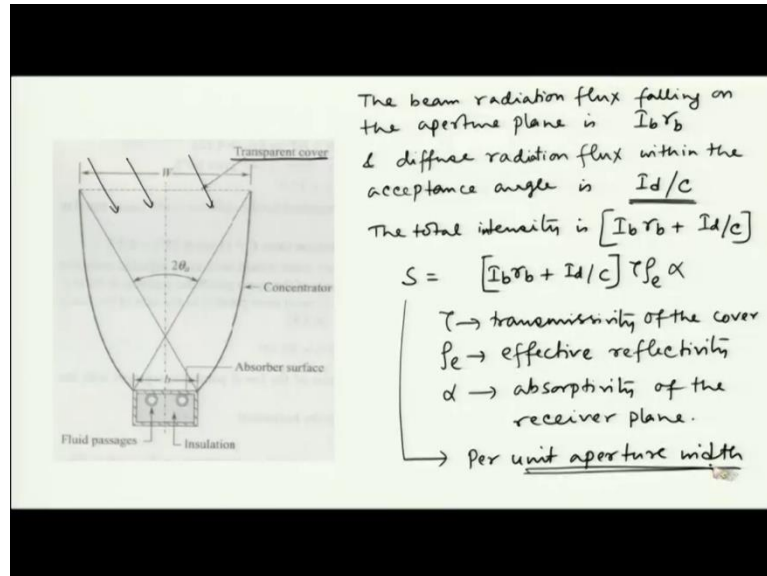 Transparent cover
W
2θa
Concentrator
Absorber surface
b
Fluid passages
Insulation
The beam radiation flux falling on
the aperture plane is Ibrb
& diffuse radiation flux within the
acceptance angle is Id/c
The total intensity is [Ibrb + Id/c]
S = [Ibrb + Id/c] τρeα
τ → transmissivity of the cover
ρe → effective reflectivity
α → absorptivity of the
receiver plane.
→ Per unit aperture width